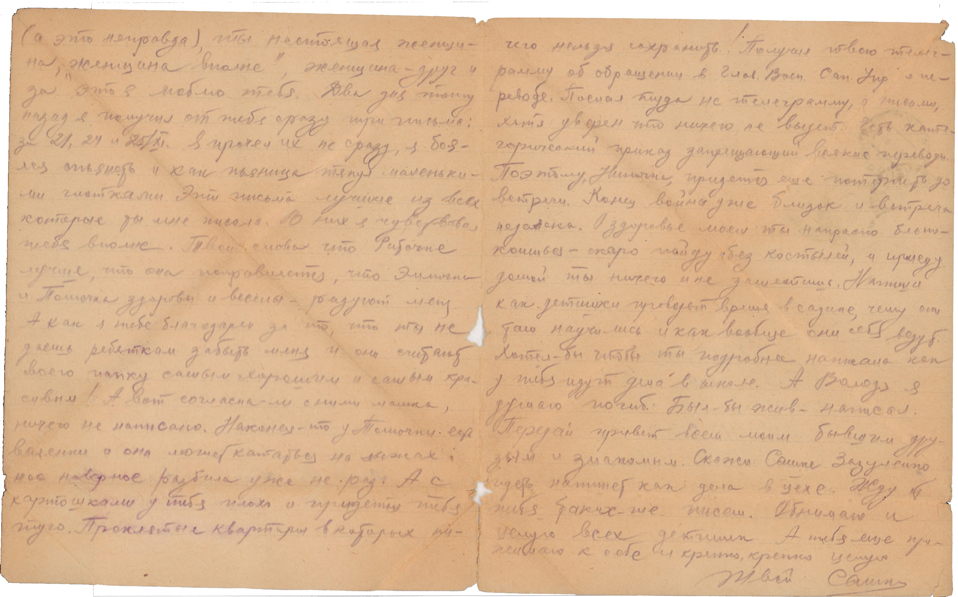 (а это неправда), ты настоящая женщи-
на, "женщина вполне", женщина-друг и
за это я люблю тебя. Два дня тому
назад я получил от тебя сразу три письма:
за 21, 24 и 25/XI. Я прочел их не сразу, я боя-
лся опьянеть и как пьяница тянул маленьки-
ми глотками Эти письма лучшие из всех
которые ты мне писала. В них я чувствовал
тебя вполне. Твои слова что Риточке
лучше, что она поправляется, что Эллочка
и Томочка здоровы и веселы - радуют меня
А как я тебе благодарен за то, что ты не
даешь ребяткам забыть меня и они считают
своего папку самым хорошим и самым кра-
сивым! А вот согласна-ли с ними мамка,
ничего не написано. Наконец-то у Томочки
валенки и она может кататься на лыжах и
нос наверное разбила уже не раз. А с
картошкой у тебя плохо и придется тебе
туго. Проклятые квартиры в которых ни-
чего нельзя сохранить! Получил твою теле-
грамму об обращении в Глав. Воен. Сан. Упр о пе-
реводе. Послал туда не телеграмму, а письмо,
хотя уверен что ничего не выйдет. Есть кате-
горический приказ запрещающий всякие переводы.
Поэтому, придется еще потерпеть до
встречи. Конец войны уже близок и встреча
недалека. О здоровье моем ты напрасно беспо-
коишься - скоро пойду без костылей, а приеду
домой ты ничего и не заметишь. Напиши
как детишки проводят время в садике, чему они
там научились и как вообще они себя ведут.
Хотел-бы чтобы ты подробно написала как
у тебя идут дела в школе. А Володя я
думаю погиб. Был-бы жив - написал.
Передай привет всем моим бывшим дру-
зьям и знакомым. Скажи Сашке Зазуленко
пусть напишет как дела в цехе. Жду от
тебя таких-же писем. Обнимаю и
целую всех детишек. А тебя еще при-
жимаю к себе и крепко, крепко целую
Твой Сашка